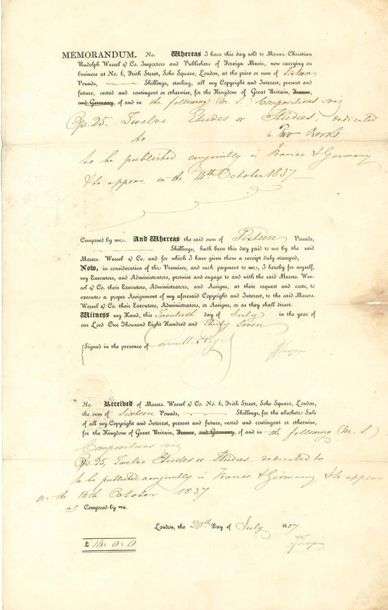 MEMORANDUM. No. Whereas I have this day sold to Messrs. Christian
Rudolph Wessel & Co. Importers and Publishers of Foreign Music, now carrying on
business at No. 6, Frith Street, Soho Square, London, at the price or sum of
Pounds, Shillings, sterling, all my Copyright and Interest, present and
future, vested and contingent or otherwise, for the Kingdom of Great Britain, France,
and Germany, of and in the following (M. S.) Compositions
Op. 25, Twelve Etudes or Studies, dedicated
to Two Books
to be published in France & Germany
& to appear on the 15th October 1837
Composed by me: And Whereas the said sum of Pounds,
Shillings, hath been this day paid to me by the said
Messrs. Wessel & Co. and for which I have given them a receipt duly stamped,
Now, in consideration of the Premises, and such payment to me, I hereby for myself,
my Executors, and Administrators, promise and engage to and with the said Messrs. Wessel
& Co. their Executors, Administrators, and Assigns, at their request and costs, to
execute a proper Assignment of my aforesaid Copyright and Interest, to the said Messrs.
Wessel & Co. their Executors, Administrators, or Assigns, or as they shall direct.
Witness my Hand, this Twentieth day of July in the year of
our Lord One Thousand Eight Hundred and Thirty Seven
(Signed in the presence of
No. Received of Messrs. Wessel & Co. No. 6, Frith Street, Soho Square, London,
the sum of Sixteen Pounds, Shillings, for the absolute Sale
of all my Copyright and Interest, present and future, vested and contingent or otherwise,
for the Kingdom of Great Britain, France, and Germany, of and in the following (M. S.)
Compositions
Op. 25, Twelve Etudes or Studies, dedicated to
to be published in France & Germany & to appear
on the 15th October 1837
Composed by me.
London, the 20th Day of July 1837
£